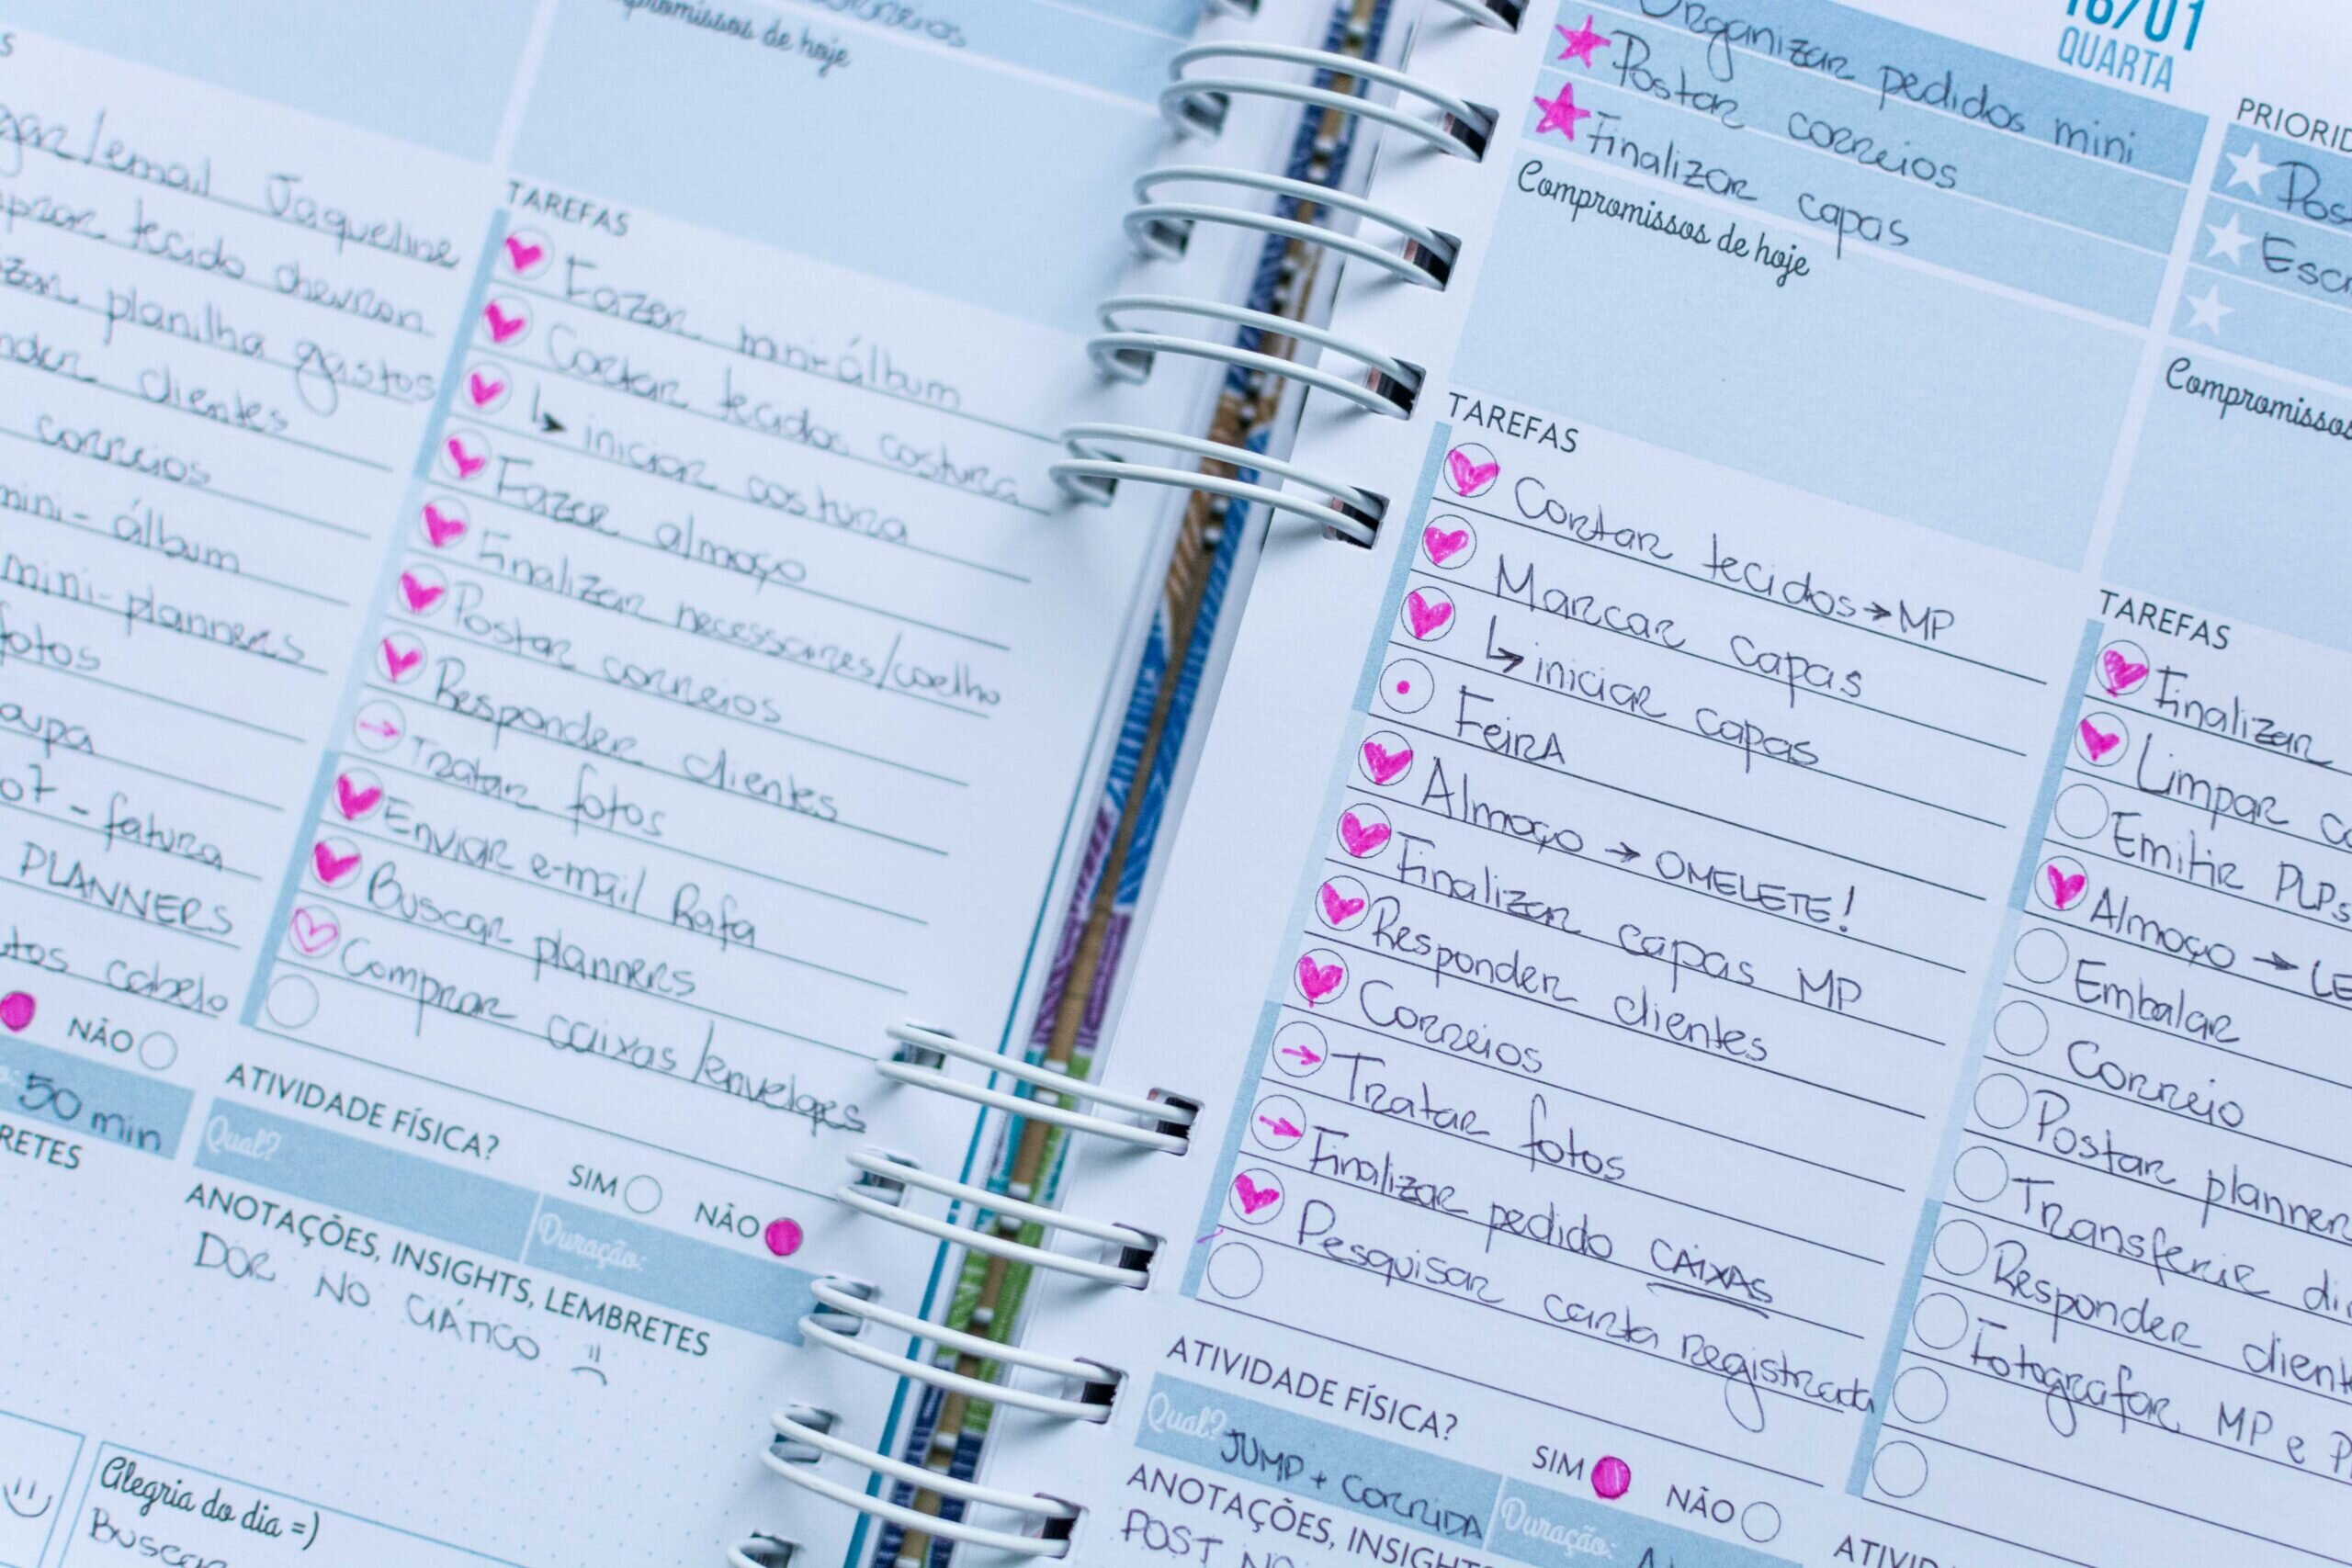 email Jaqueline
tecido chevron
planilha gastos
clientes
correios
mini-álbum
mini-planners
fotos
fatura
PLANNERS
cabelo
NÃO
50 min
correios
Compromissos de hoje
TAREFAS
Fazer mini-álbum
Cortar tecidos costura
↳ iniciar costura
Fazer almoço
Finalizar necessaires/coelho
Postar correios
Responder clientes
Tratar fotos
Enviar e-mail Rafa
Buscar planners
Comprar caixas/envelopes
ATIVIDADE FÍSICA?
SIM NÃO
Qual?
Duração:
ANOTAÇÕES, INSIGHTS, LEMBRETES
DOR NO CIÁTICO
Alegria do dia =)
Buscar
16/01
QUARTA
Organizar pedidos mini
Postar correios
Finalizar capas
Compromissos de hoje
TAREFAS
Cortar tecidos → MP
Marcar capas
↳ iniciar capas
FeirA
Almoço → OMELETE!
Finalizar capas MP
Responder clientes
Correios
Tratar fotos
Finalizar pedido CAIXAS
Pesquisar carta registrada
ATIVIDADE FÍSICA?
SIM NÃO
Qual? JUMP + CORRIDA
Duração:
ANOTAÇÕES, INSIGHTS
POST
PRIORID
Pos
Escr
Compromissos
TAREFAS
Finalizar
Limpar
Emitir PLPs
Almoço → LE
Embalar
Correio
Postar planner
Transferir di
Responder client
Fotografar MP e P
ATIVID